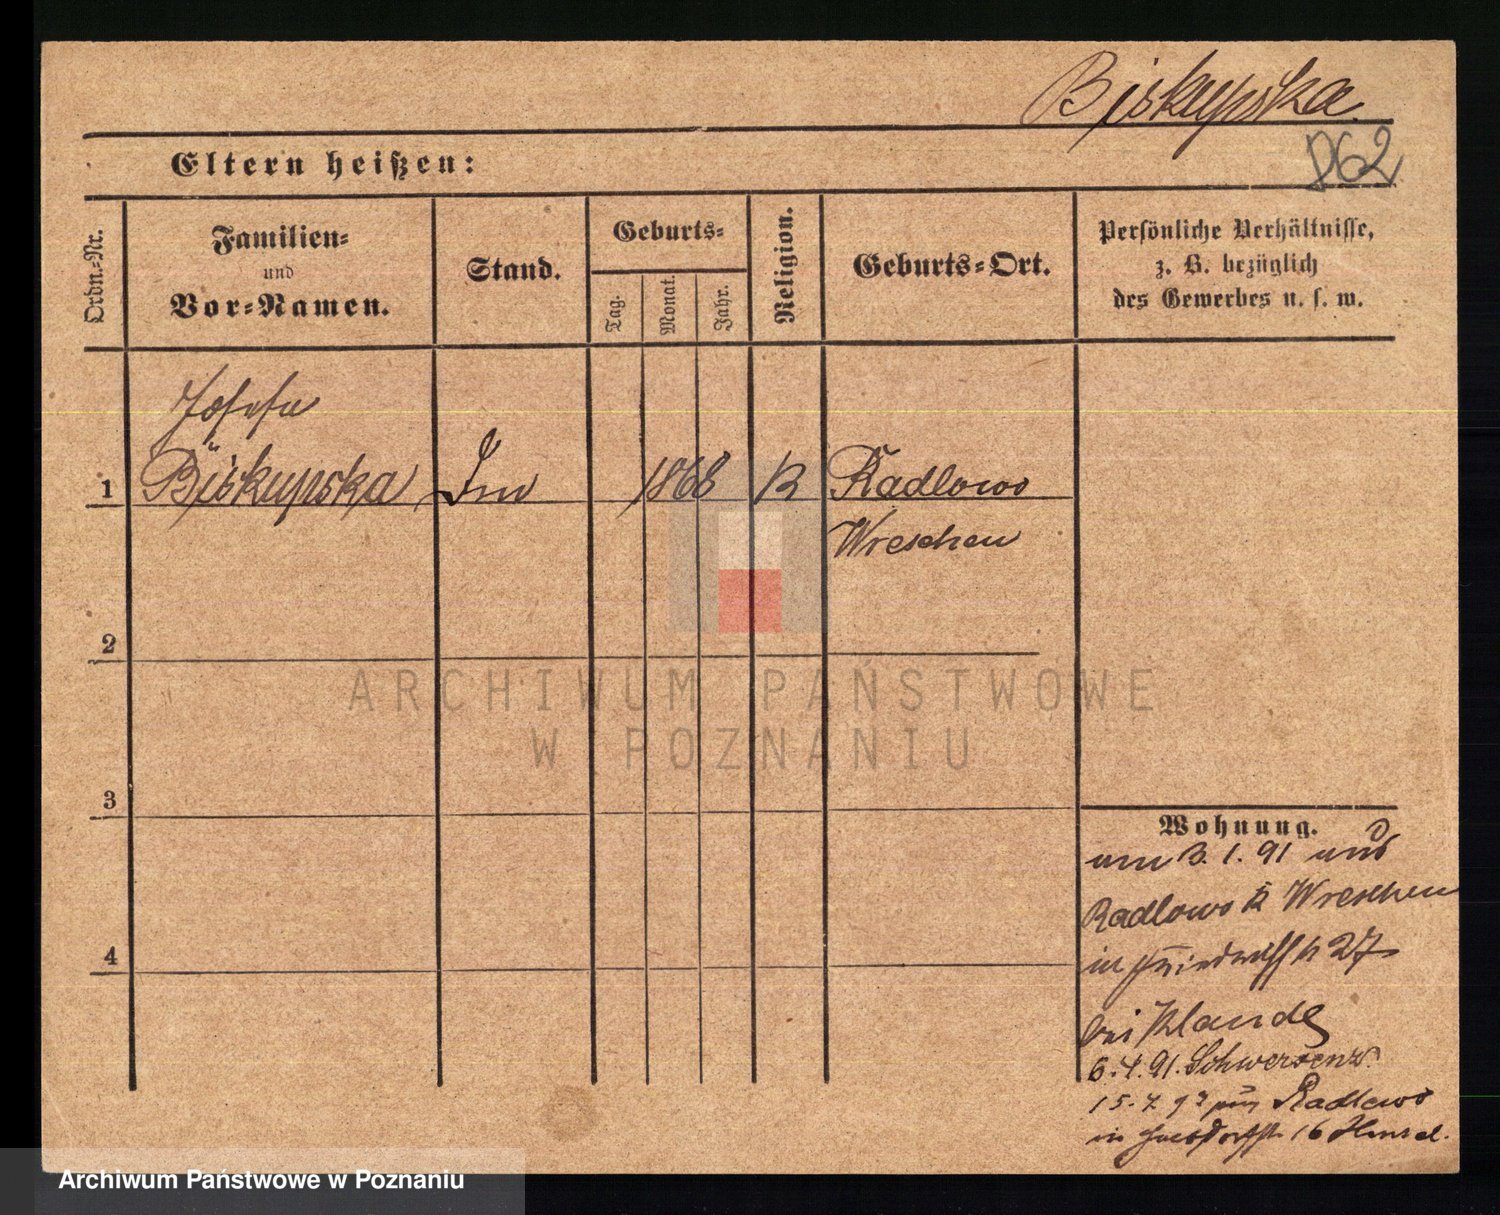 Biskupska
862
Eltern heißen:
Ordn.-Nr.
Familien-
und
Vor-Namen.
Stand.
Geburts-
Tag.
Monat.
Jahr.
Religion.
Geburts-Ort.
Persönliche Verhältnisse,
z. B. bezüglich
des Gewerbes u. s. w.
Josefa
1 Biskupska 1868 K Radlowo
Wreschen
2
3
4
Wohnung.
am 3. 1. 91 aus
Radlowo K Wreschen
in 27
bei
6. 4. 91. Schwersenz
15. 7. Radlowo
in 16
ARCHIWUM PAŃSTWOWE
W POZNANIU
Archiwum Państwowe w Poznaniu